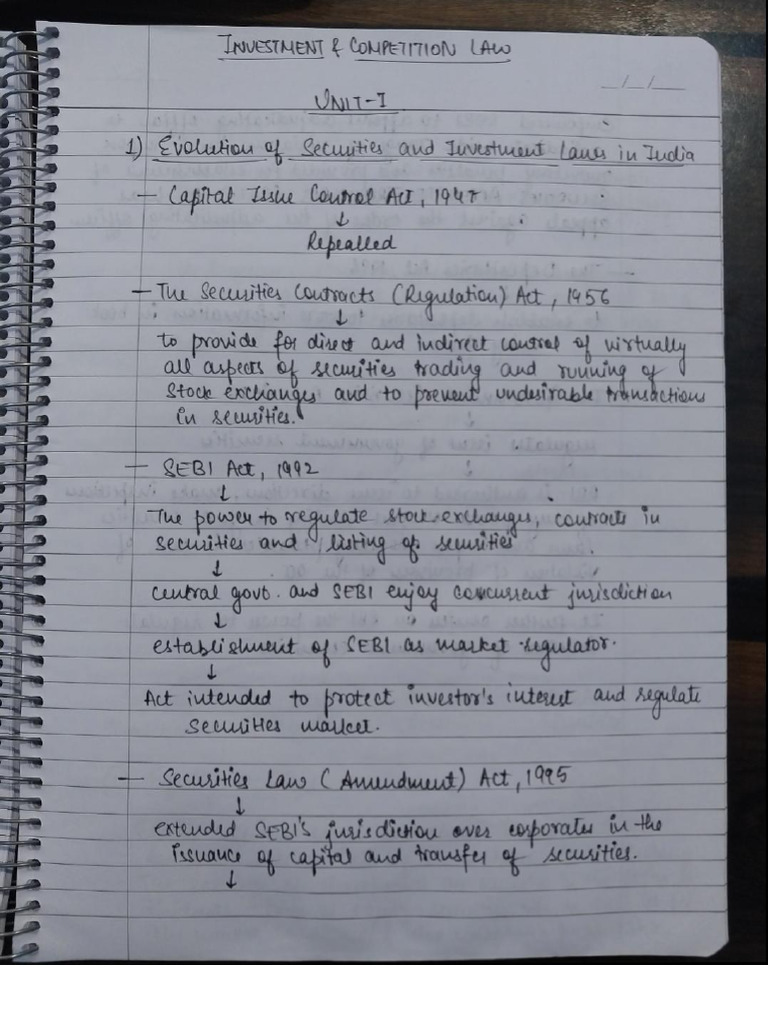 INVESTMENT & COMPETITION LAW
_/_/_
UNIT-I
1) Evolution of Securities and Investment Laws in India
- Capital Issue Control Act, 1947
↓
Repealled
- The Securities Contracts (Regulation) Act, 1956
↓
to provide for direct and indirect control of virtually
all aspects of securities trading and running of
Stock exchanges and to prevent undesirable transactions
in securities.
- SEBI Act, 1992
↓
The power to regulate stock exchanges, contracts in
securities and listing of securities
↓
central govt. and SEBI enjoy concurrent jurisdiction
↓
establishment of SEBI as market regulator.
↓
Act intended to protect investor's interest and regulate
Securities market.
- Securities Law (Amendment) Act, 1995
↓
extended SEBI's jurisdiction over corporates in the
issuance of capital and transfer of securities.
↓